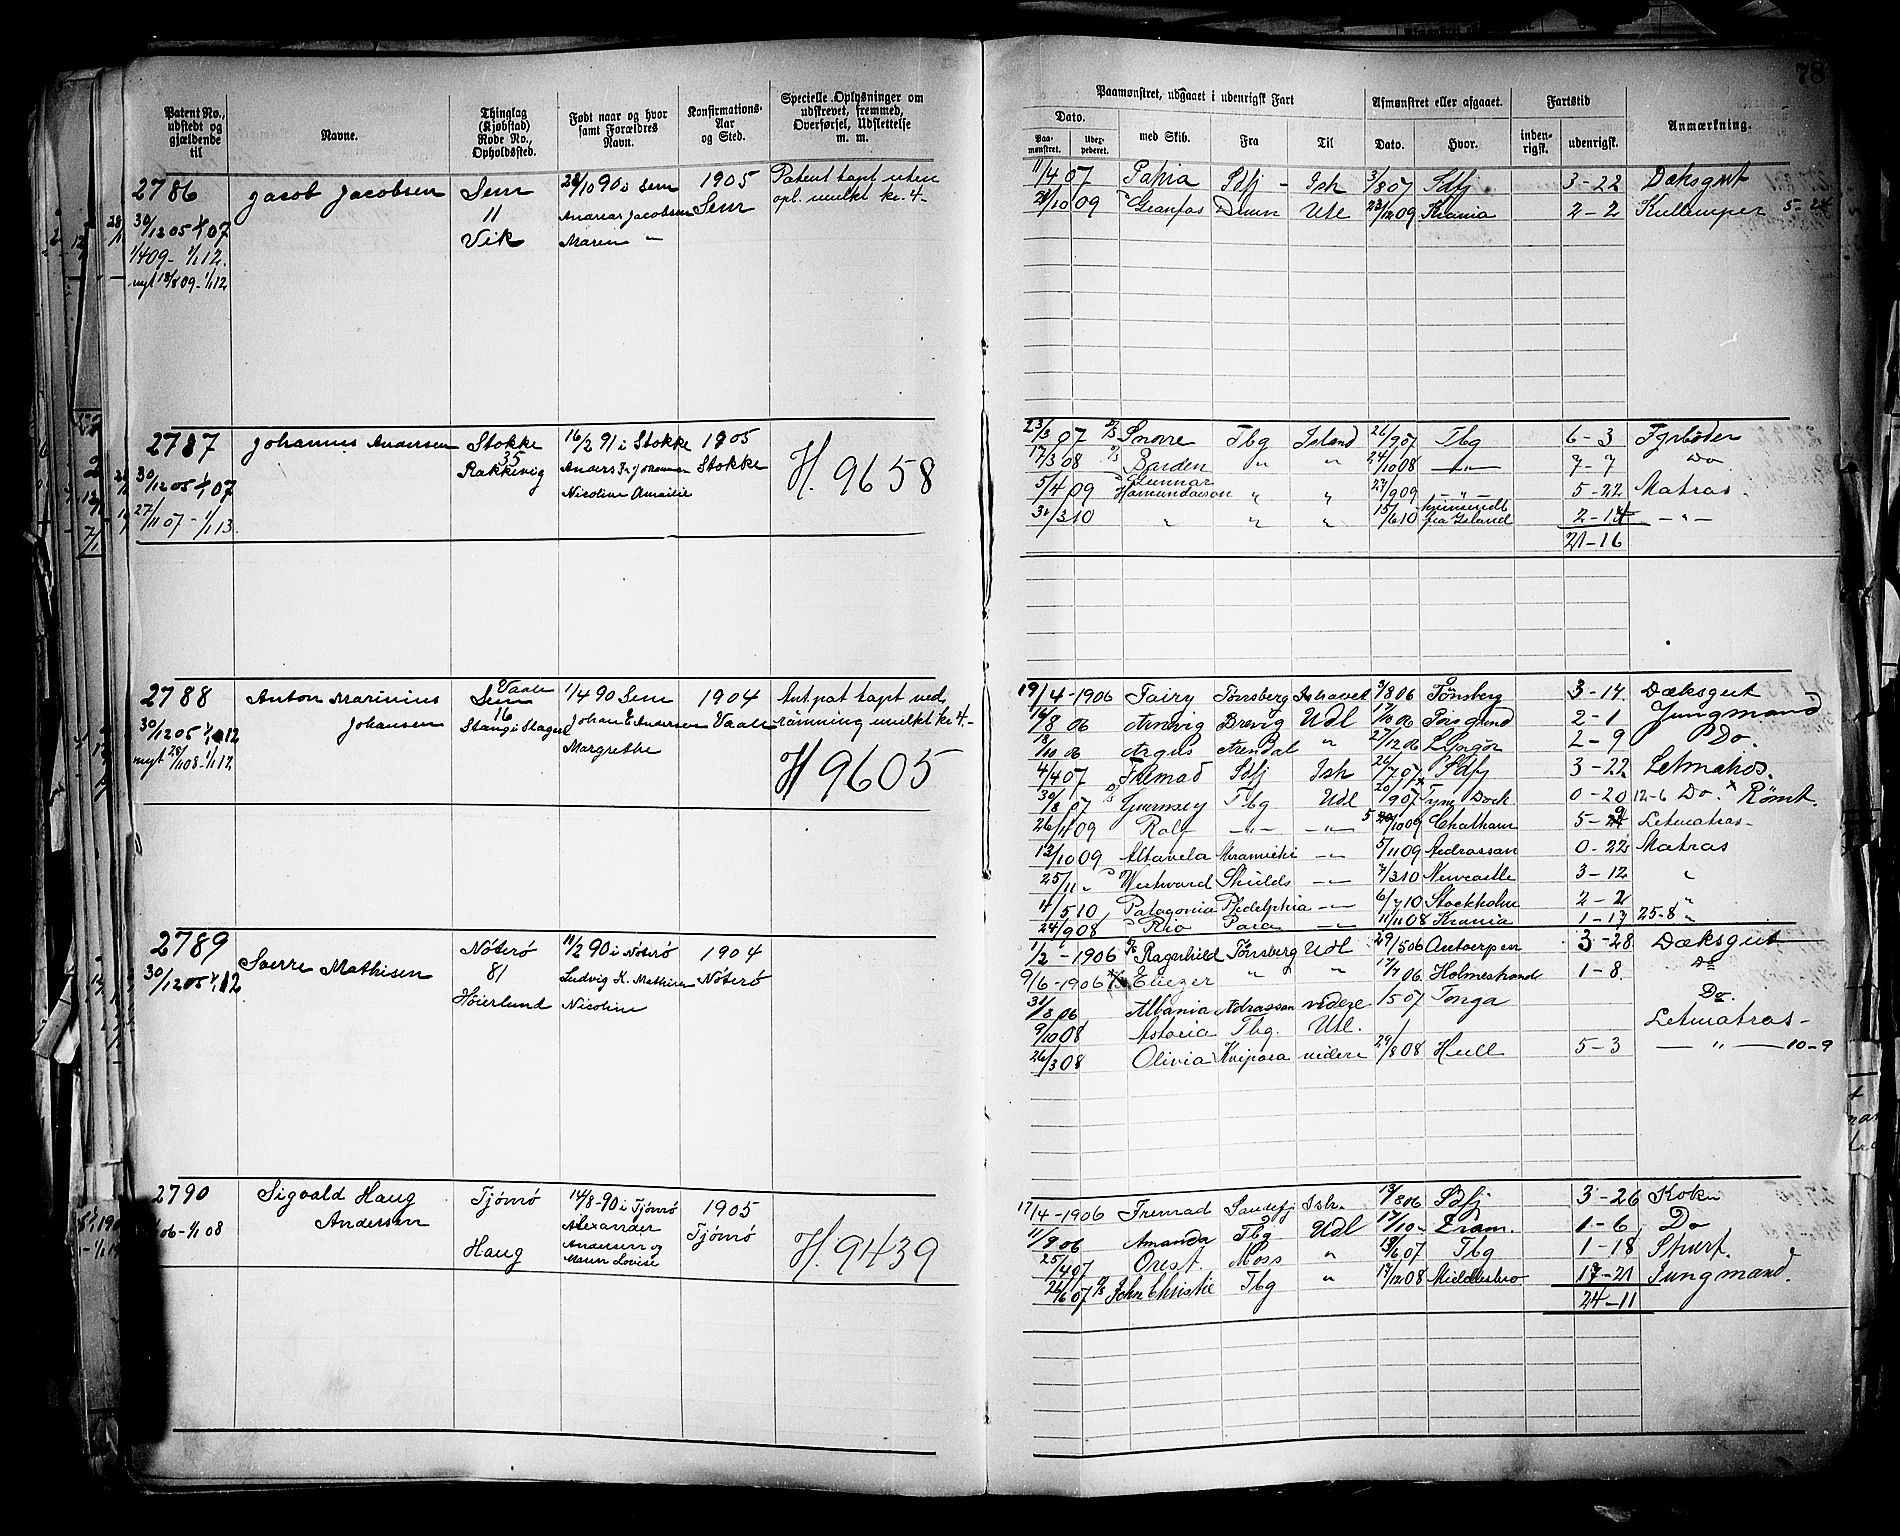 78
Patent No., udstedt og gjældende til
Navne.
Thinglag (Kjøbstad) Rode No., Opholdssted.
Født naar og hvor samt Forældres Navn.
Konfirmations-Aar og Sted.
Specielle Oplysninger om udskrevet, fremmed, Overførsel, Udslettelse m. m.
Paamønstret, udgaaet i udenrigsk Fart
Afmønstret eller afgaaet.
Fartstid
Anmærkning.
Dato.
Paa-mønstret.
med Skib.
Fra
Til
Dato.
Hvor.
inden-rigsk.
udenrigsk.
2786
30/12 05 1/1 07
1/4 09 - 1/1 12.
nyt 18/8 09 - 1/1 12
Jacob Jacobsen
Sem
11
Vik
28/10 90 i Sem
Andreas Jacobsen
Maren "
1905
Sem
Patent tapt uten
opl. mulkt kr. 4-
11/4 07 Sdfj - Ish 3/8 07 Sdfj 3-22 Dæksgut
21/10 09 Dram Utl 23/12 09 Krania 2-2 Kullemper 5-24
2787
30/12 05 1/1 07
27/11 07 - 1/1 13.
Johannes Andersen
Stokke
35
Rakkevig
16/2 91 i Stokke
Nicoline Amalie
1905
Stokke
H. 9658
23/3 07 D/S Snorre Tbg Island 26/9 07 Tbg 6-3 Fyrbøder
17/3 08 D/S Barden " " 24/10 08 - " - 7-7 Do
5/4 09 Gunnar Hamundarson " " 27/9 09 - " - 5-22 Matros.
31/3 10 " " " 15/6 10 hjemsendt fra Island 2-14 - " -
21-16
2788
30/12 05 1/1 12
nyt 28/1 08 - 1/1 12.
Anton Marinius
Johansen
Vaale
Sem
16
Stang i Slagen
1/4 90 Sem
Johan Edvardsen
Margrethe
1904
Vaale
Ant. pat tapt ved
rømning mulkt kr 4.-
H 9605
19/4-1906 Fairy Tønsberg Ishavet 3/8 06 Tønsberg 3-14. Dæksgut
16/8 06 Arnevig Brevig Udl 17/10 06 Porsgrund 2-1 Jungmand
18/10 06 Argus Arendal " 27/12 06 2-9 Do.
4/4 07 Fremad Sdfj Ish 26/7 07 Sdfj 3-22 Letmatros.
30/8 07 D/S Guernsey Tbg Udl 20/9 07 Tyne Dock 0-20 12-6 Do. x Rømt.
26/4 09 Rolf - " - - " - 10 09 Chatham 5- Letmatros-
13/10 09 Altavela Miramichi - " - 5/11 09 Ardrossan 0-22 Matros
25/11 " Westward Shields - " - 7/3 10 Newcastle 3-12 "
4/5 10 Patagonia - " - 6/7 10 Stockholm 2-2 "
24/9 08 Rio Para - " - 11/11 08 Krania 1-17 25-8 "
2789
30/12 05 1/1 12
Sverre Mathisen
Nøterø
81
Høierlund
11/2 90 i Nøterø
Ludvig K. Mathisen
Nicoline
1904
Nøterø
1/2 - 1906 Ragnhild Tønsberg Udl 29/5 06 Antwerpen 3-28 Dæksgut
9/6-1906 Eliezer " " 17/7 06 Holmestrand 1-8. Do
31/8 06 Albania Ardrossan videre 1/5 07 Tonga Do.
9/10 08 Astoria Tbg. Utl. Letmatros-
26/3 08 Olivia Kaipara videre 29/8 08 Hull 5-3 - " - 10-9
2790
06-1/1 08
Sigvald Haug
Andersen
Tjømø
Haug
14/8-90 i Tjømø
Alexander
Andersen og
Maren Lovise
1905
Tjømø
H. 9439
17/4-1906 Fremad Sandefj Ish. 13/8 06 Sdfj 3-26 Kok
11/9 06 Amanda Tbg Udl 17/10 - Dram. 1-6 Do
25/4 07 Orest Moss " 13/6 07 Tbg 1-18 Stuert.
26/6 07 D/S John Christie Tbg " 17/12 08 Middlesbro 17-21 Jungmand.
24-11